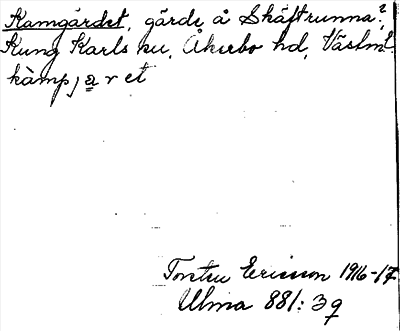 Kamgärdet, gärde å Skäftrunna?
Kung Karls sn, Åkerbo hd, Västml.
kàmpjạret
Torsten Ericsson 1916-17
Ulma 881:39